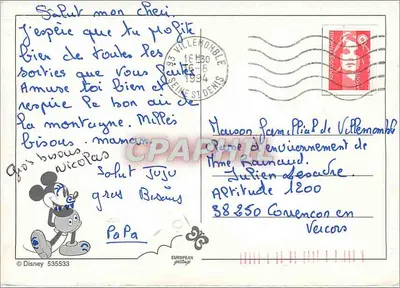 Salut mon cheri
J'espère que tu profite
bien de toutes les
sorties que vous faites
Amuse toi bien et
respire le bon air de
la montagne. Milles
bisous. maman.
gros bisous
Nicolas
Salut JuJu
gros Bisous
PaPa
© Disney 535533
EUROPEAN
93 VILLEMOMBLE
16H30
1994
SEINE ST DENIS
CPARHIF
Maison familial de Villemomble
Classe d'environnement de
Mme
Julien
Altitude 1200
38250 Correncon en
Vercors